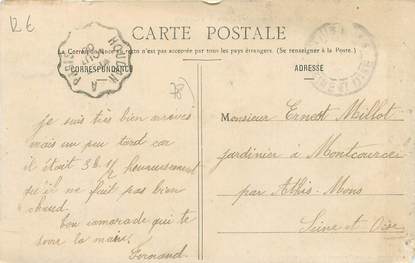 R 6
CARTE POSTALE
La Correspondance au recto n'est pas acceptée par tous les pays étrangers. (Se renseigner à la Poste.)
CORRESPONDANCE
ADRESSE
HOUDAN A PARIS
78
SEINE ET OISE
je suis très bien arrivé
mais un peu tard car
il était 3h 1/2 heureusement
qu'il ne fait pas bien
chaud.
bon camarade qui te
serre la main.
Fernand
Monsieur Ernest Millot
jardinier à Montcourcel
par Athis-Mons
Seine et Oise